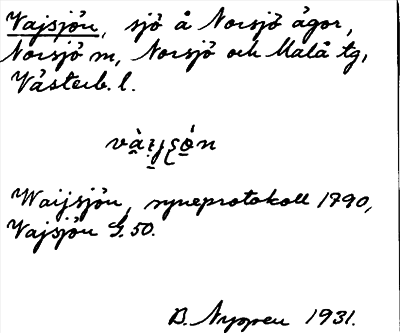 Vajsjön, sjö å Norsjö ägor,
Norsjö m, Norsjö och Malå tg,
Västerb. l.
Waijsjön, syneprotokoll 1790,
Vajsjön G. 50.
B. Nygren 1931.